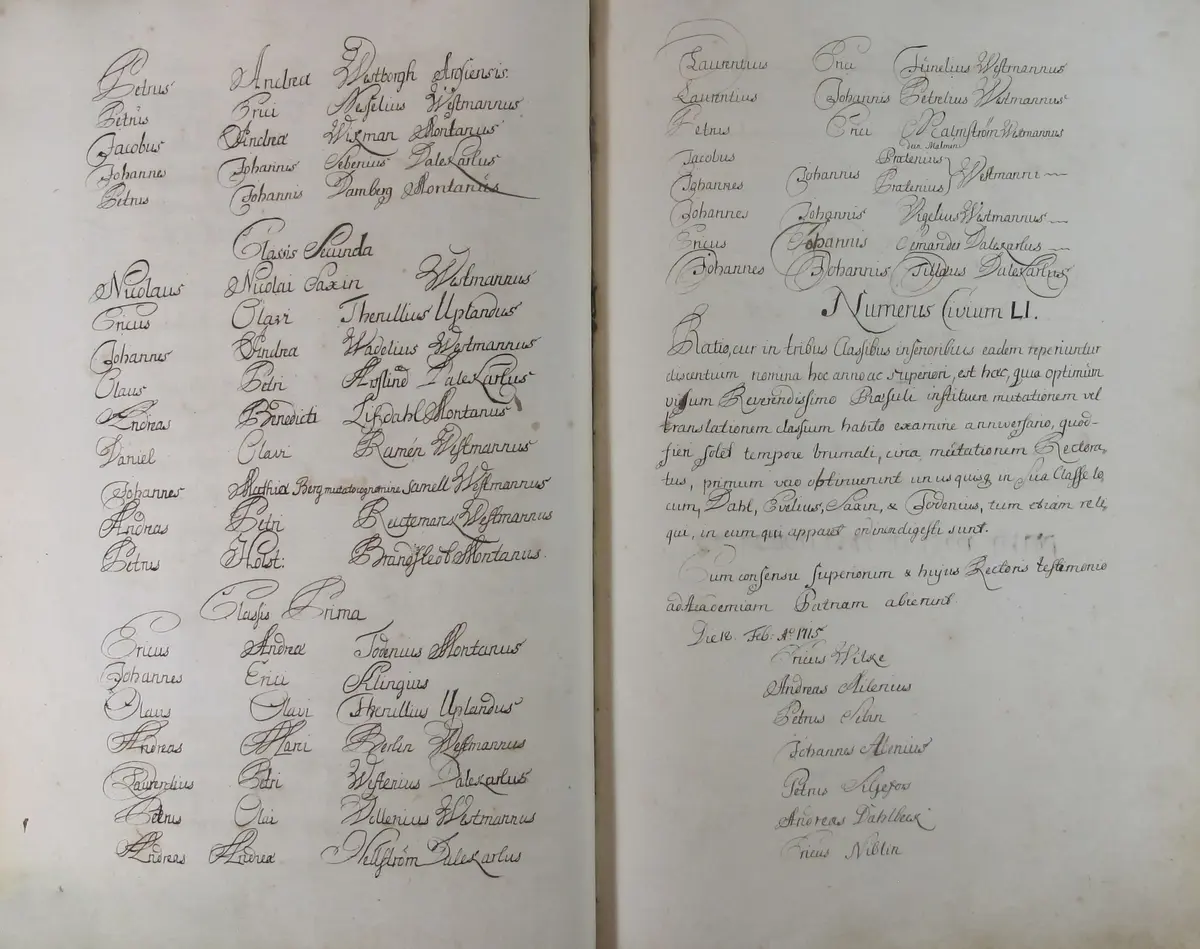 Petrus Andreæ Westborgh Arosiensis.
Petrus Erici Noselius Westmannus
Jacobus Andreæ Wikman Montanus
Johannes Johannis Sebenius Dalekarlus
Petrus Johannis Damberg Montanus
Classis Secunda
Nicolaus Nicolai Saxin Westmannus
Ericus Olavi Thenullius Uplandus
Johannes Andreæ Wadelius Westmannus
Olaus Petri Dalekarlus
Andreas Benedicti Lifdahl Montanus
Daniel Olavi Ramén Westmannus
Johannes Mathiæ Berg mutato cognomine Samell Westmannus
Andreas Petri Westmannus
Petrus Holst: Montanus.
Classis Prima
Ericus Andreæ Todenius Montanus
Johannes Erici Klingius
Olaus Olavi Thenullius Uplandus
Andreas Mani Berlin Westmannus
Laurentius Petri Westenius Dalekarlus
Petrus Olai Wellenius Westmannus
Andreas Andreæ Hellström Dalekarlus
Laurentius Erici Westmannus
Laurentius Johannis Petrelius Westmannus
Petrus Erici Malmström Westmannus
Jacobus Pratenius
Johannes Johannis Pratenius Westmanni
Johannes Johannis Vigelius Westmannus
Ericus Johannis Dalekarlus
Johannes Johannis Tillæus Dalekarlus
Numerus Civium LI.
Ratio, cur in tribus Classibus inferioribus eadem reperiuntur
discentium nomina hoc anno ac superiori, est hæc, quia optimum
visum Reverendissimo Præsuli instituere mutationem vel
translationem classium habito examine anniversario, quod-
fieri solet tempore brumali, circa mutationem Rectora-
tus, primum vero obtinuerunt unusquisq in sua Classe lo,
cum, Dahl, Evelius, Saxin, & Todenius, tum etiam reli,
qui, in eum qui apparet ordinem digesti sunt.
Cum consensu superiorum & hujus Rectoris testimonio
ad Academiam Patriam abierunt.
Die 18. Feb: Aº 1715
Ericus Wilske
Andreas Milenius
Petrus Selin
Johannes Alenius
Petrus
Andreas Dahlbeck
Ericus Niblin